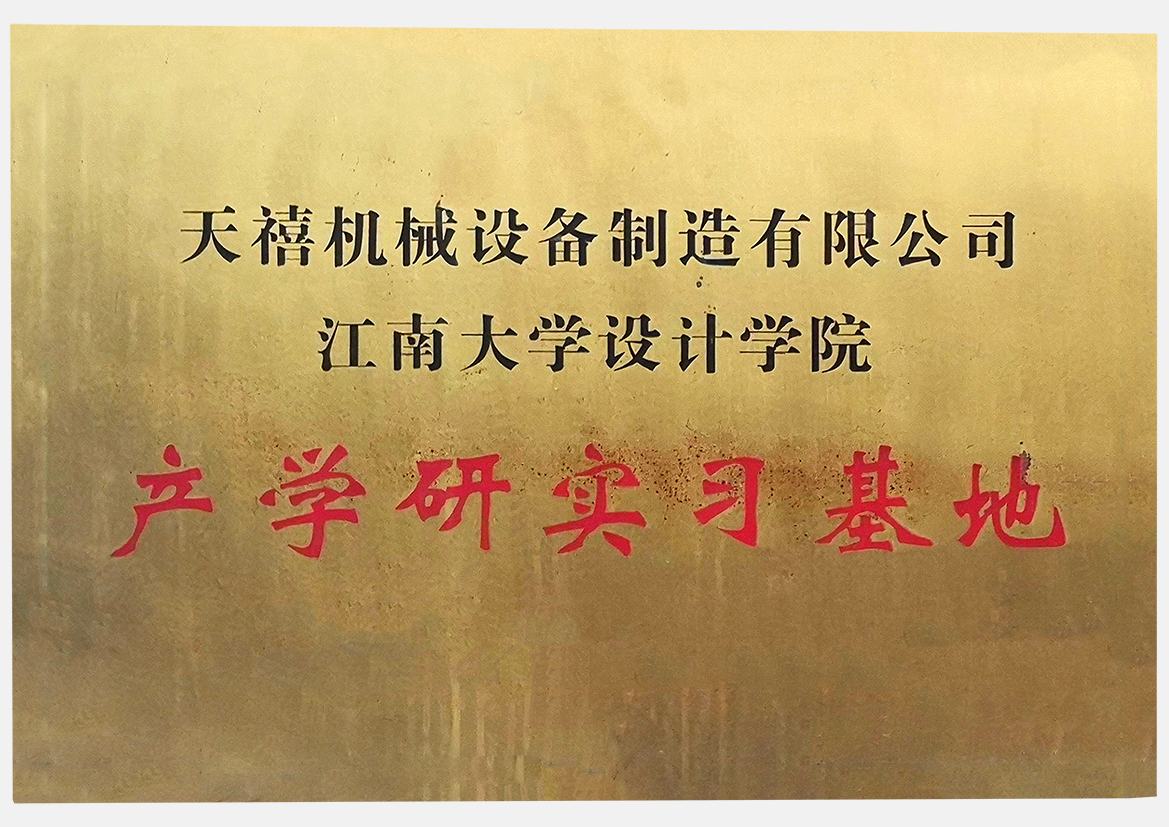 天禧机械设备制造有限公司
江南大学设计学院
产学研实习基地